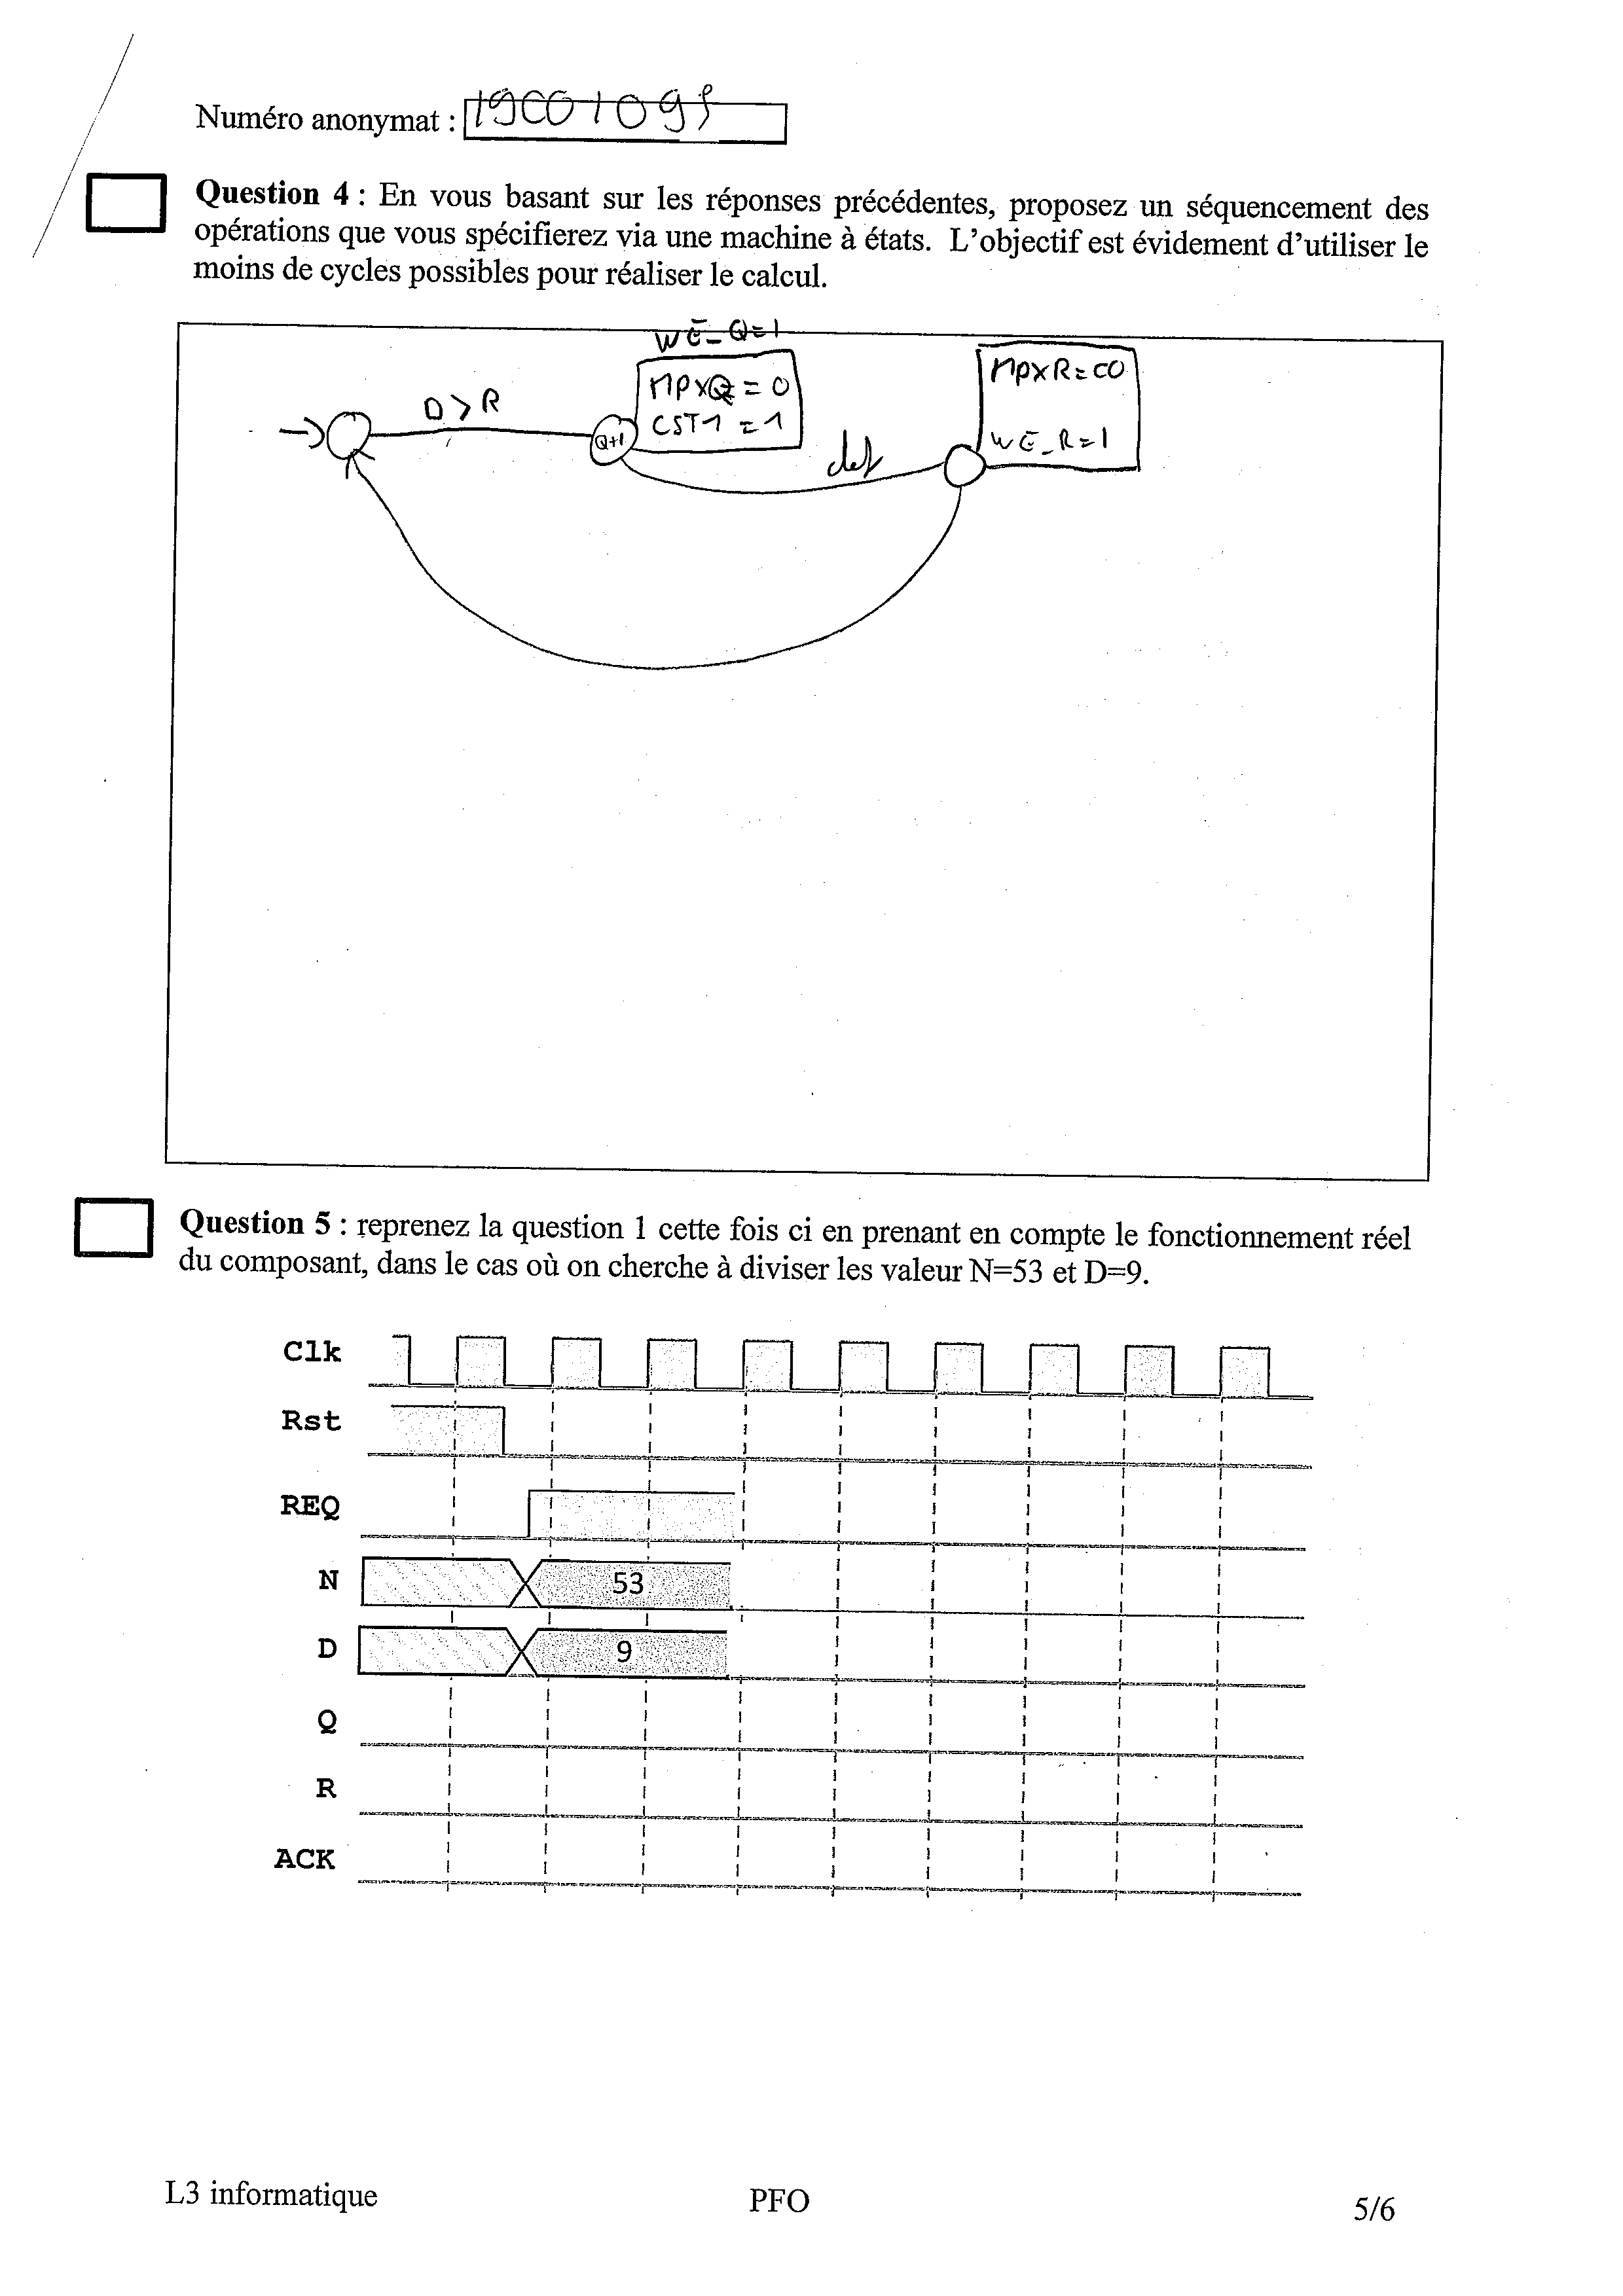 Numéro anonymat :
Question 4 : En vous basant sur les réponses précédentes, proposez un séquencement des
opérations que vous spécifierez via une machine à états. L'objectif est évidement d'utiliser le
moins de cycles possibles pour réaliser le calcul.
WE_Q=1
D>R
Q+1
MPXQ = 0
CST1 = 1
def
MPXR=00
WE_R=1
Question 5 : reprenez la question 1 cette fois ci en prenant en compte le fonctionnement réel
du composant, dans le cas où on cherche à diviser les valeur N=53 et D=9.
Clk
Rst
REQ
N 53
D 9
Q
R
ACK
L3 informatique PFO 5/6